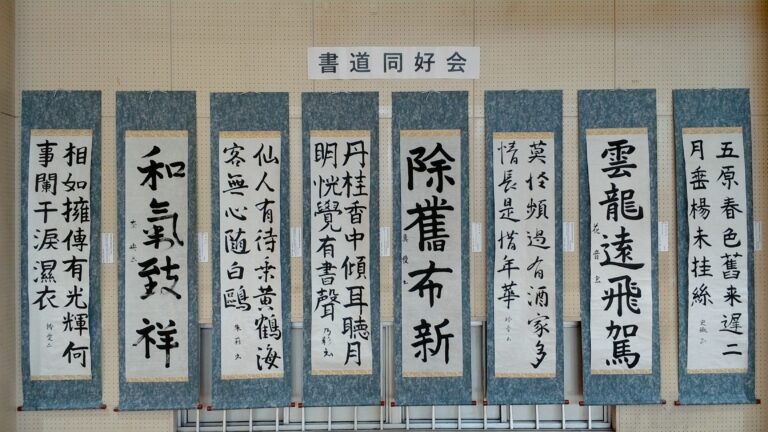 書道同好会
五原春色舊来遲二
月垂楊未挂絲
雲龍遠飛駕
莫怪頻過有酒家多
情長是惜年華
除舊布新
丹桂香中傾耳聽月
明恍覺有書聲
仙人有待乗黄鶴海
客無心随白鷗
和氣致祥
相如擁傳有光輝何
事闌干淚濕衣